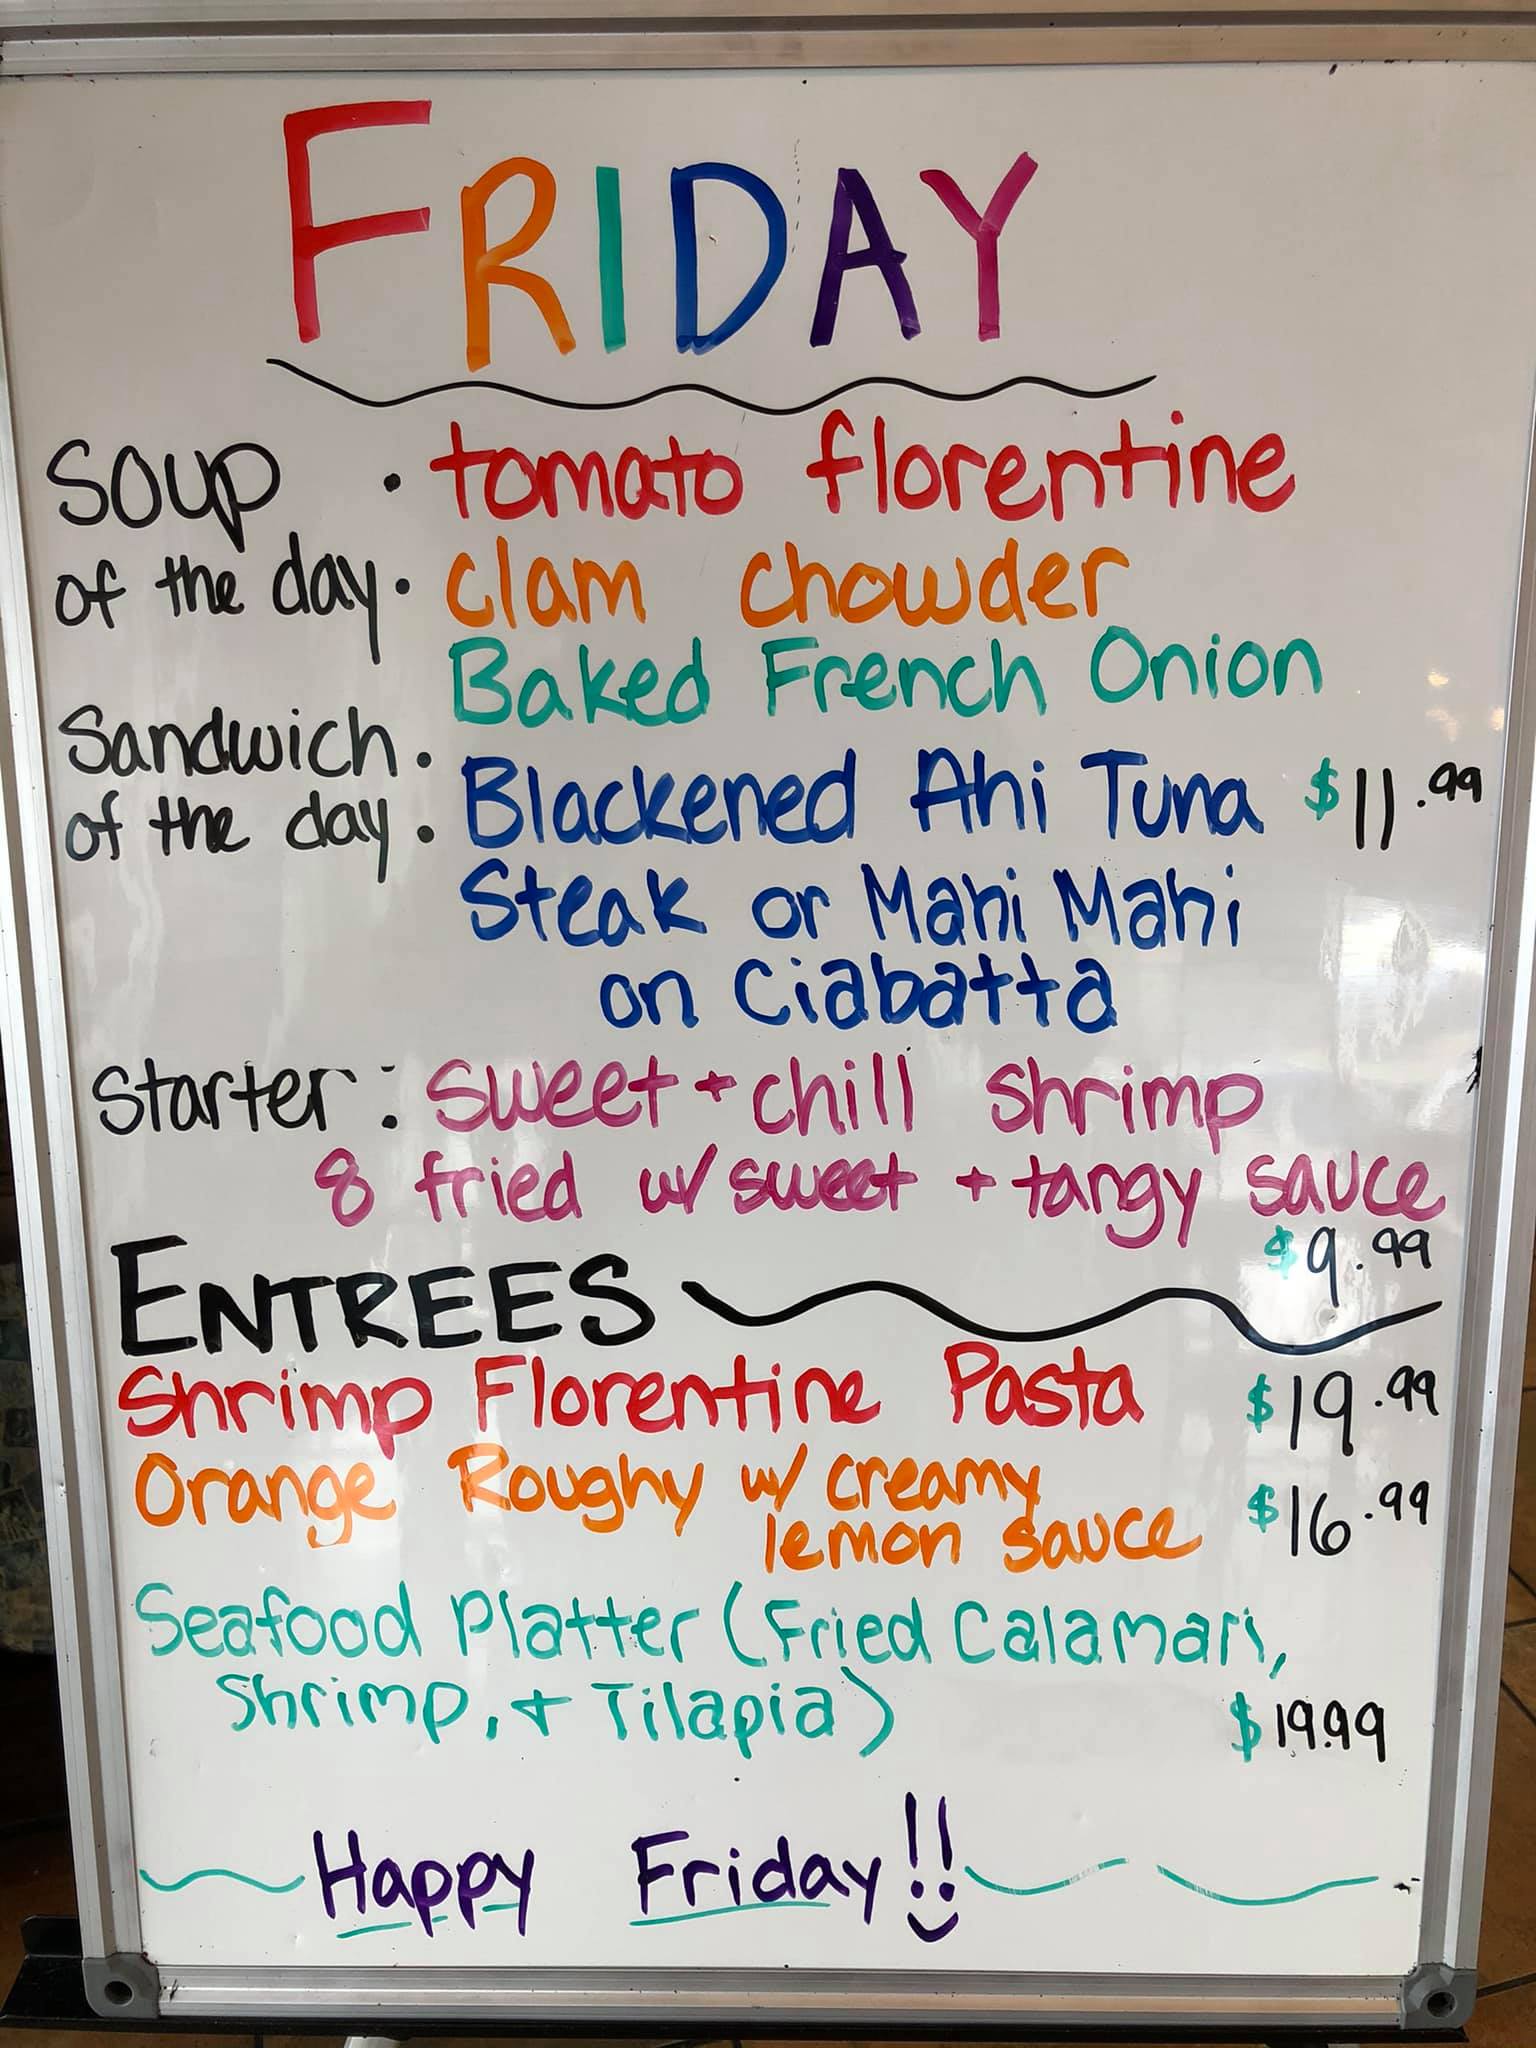 FRIDAY
Soup of the day
• tomato florentine
• clam chowder
Baked French Onion
Sandwich of the day
: Blackened Ahi Tuna $11.99
Steak or Mahi Mahi
on Ciabatta
Starter: sweet + chill shrimp
8 fried w/ sweet + tangy sauce
$9.99
ENTREES
Shrimp Florentine Pasta $19.99
Orange Roughy w/ creamy
lemon sauce $16.99
Seafood Platter (Fried Calamari,
Shrimp, + Tilapia) $19.99
Happy Friday!!